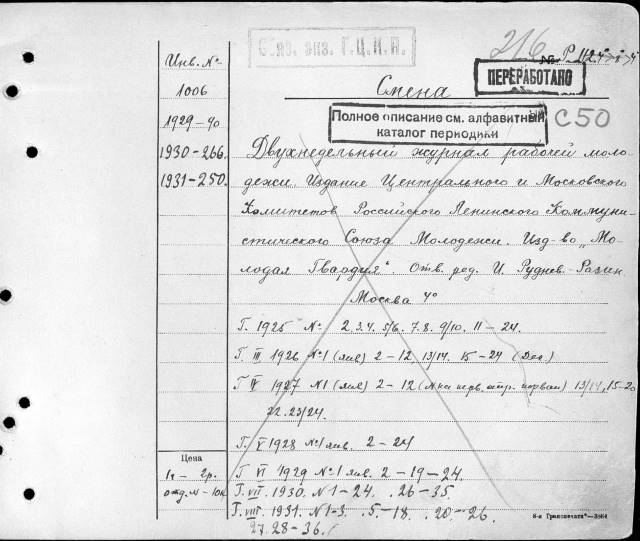 Обяз. экз. Г.Ц.К.П.
216
Инв. №
ПЕРЕРАБОТАНО
1006
Смена
1929-90
Полное описание см. алфавитный
каталог периодики
С50
1930-266.
1931-250.
Двухнедельный журнал рабочей моло-
дежи. Издание Центрального и Московского
Комитетов Российского Ленинского Коммуни-
стического Союза Молодежи. Изд-во „Мо-
лодая Гвардия". Отв. ред. И. Руднев-Разин.
Москва 4°
Г. 1925 № 2.3.4. 5/6. 7.8. 9/10. 11-24.
Г. III 1926 №1 (янв) 2-12. 13/14. 15-24 (Дек)
Г IV 1927 №1 (янв) 2-12 (№ на перв. стр. первый) 13/14, 15-20
22. 23/24.
Г. V 1928 №1 янв. 2-24
Цена
Г VI 1929 №1 янв. 2-19-24.
Г. VII. 1930. №1-24. 26-35.
Г. VIII. 1931. №1-3. 5-18. 20-26.
27. 28-36.